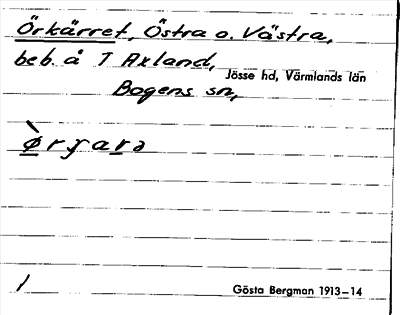 Örkärret, Östra o. Västra,
beb. å 7 Axland,
Jösse hd, Värmlands län
Bogens sn,
1
Gösta Bergman 1913–14